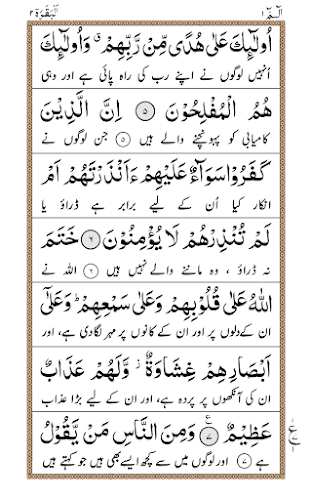 الٓمّٓ ١
اَلْبَقَرَة ٢
اُولٰٓئِكَ عَلٰى هُدًى مِّنْ رَّبِّهِمْ ۗ وَاُولٰٓئِكَ
اُنہیں لوگوں نے اپنے رب کی راہ پائی ہے اور وہی
هُمُ الْمُفْلِحُوْنَ ۝۵ اِنَّ الَّذِيْنَ
کامیابی کو پہونچنے والے ہیں ۝۵ جن لوگوں نے
كَفَرُوْا سَوَآءٌ عَلَيْهِمْ ءَاَنْذَرْتَهُمْ اَمْ
انکار کیا اُن کے لیے برابر ہے ڈراؤ یا
لَمْ تُنْذِرْهُمْ لَا يُؤْمِنُوْنَ ۝۶ خَتَمَ
نہ ڈراؤ ، وہ ماننے والے نہیں ہیں ۝۶ اللہ نے
اللّٰهُ عَلٰى قُلُوْبِهِمْ وَعَلٰى سَمْعِهِمْ ۗ وَعَلٰٓى
ان کے دلوں پر اور ان کے کانوں پر مہر لگا دی ہے، اور
اَبْصَارِهِمْ غِشَاوَةٌ ۡ وَّلَهُمْ عَذَابٌ
ان کی آنکھوں پر پردہ ہے، اور ان کے لیے بڑا عذاب
عَظِيْمٌ ۝۷ ع وَمِنَ النَّاسِ مَنْ يَّقُوْلُ
ہے ۝۷ اور لوگوں میں سے کچھ ایسے بھی ہیں جو کہتے ہیں